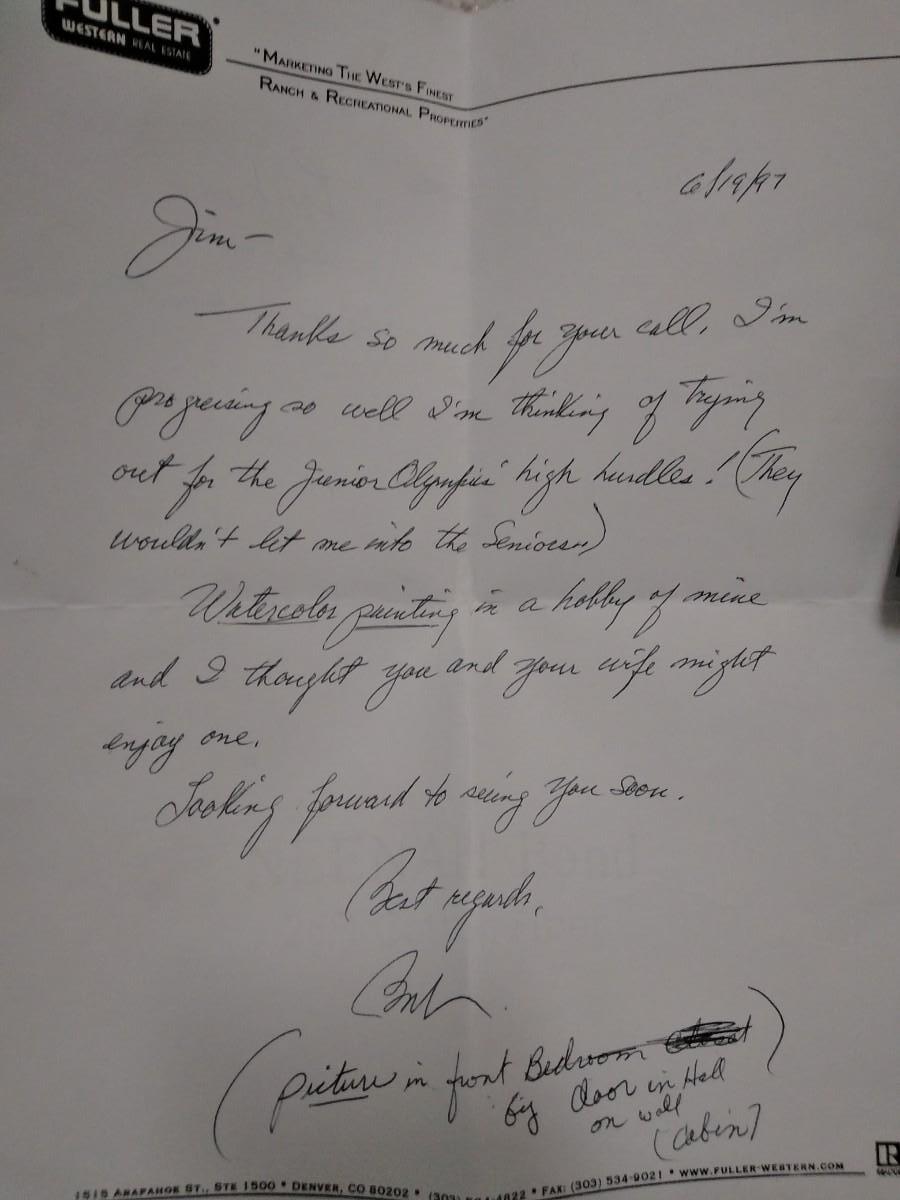 FULLER
WESTERN REAL ESTATE
"MARKETING THE WEST'S FINEST
RANCH & RECREATIONAL PROPERTIES"
6/19/97
Jim—
Thanks so much for your call. I'm
progressing so well I'm thinking of trying
out for the Junior Olympics' high hurdles! (They
wouldn't let me into the Seniors..)
Watercolor painting is a hobby of mine
and I thought you and your wife might
enjoy one.
Looking forward to seeing you soon.
Best regards,
Bob
(picture in front Bedroom)
by door in Hall
on wall
(Cabin)
1515 ARAPAHOE ST., STE 1500 • DENVER, CO 80202 • (303) 534-4822 • FAX: (303) 534-9021 • WWW.FULLER-WESTERN.COM